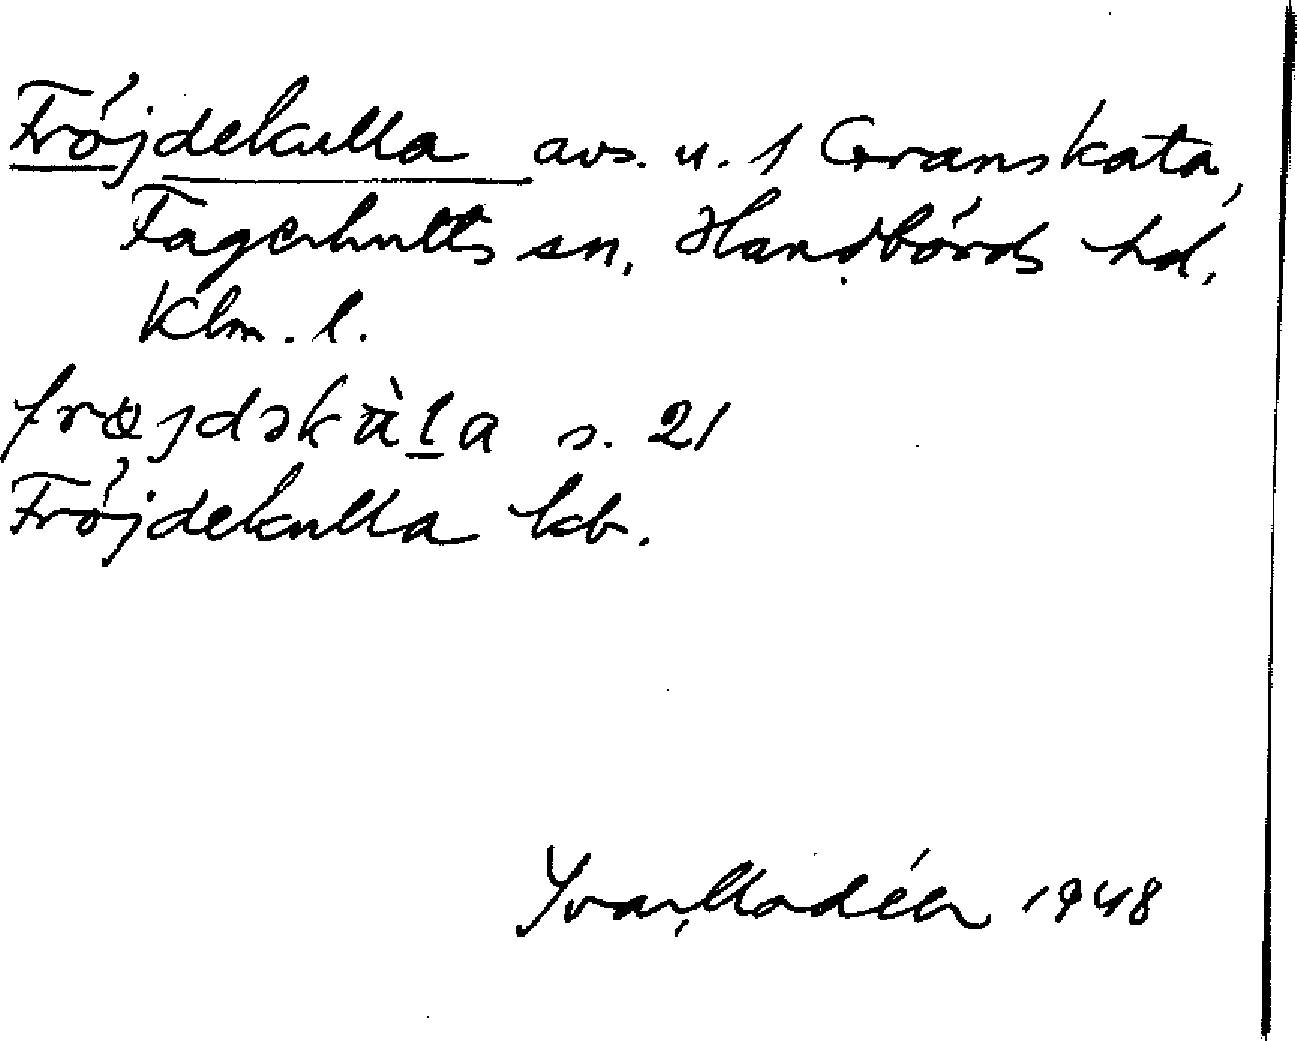 Fröjdekulla avs. u. 1 Granskata,
Fagerhults sn, Handbörds hd,
Klm. l.
frøjdəkàla s. 21
Fröjdekulla kb.
Ivar Modéer 1948